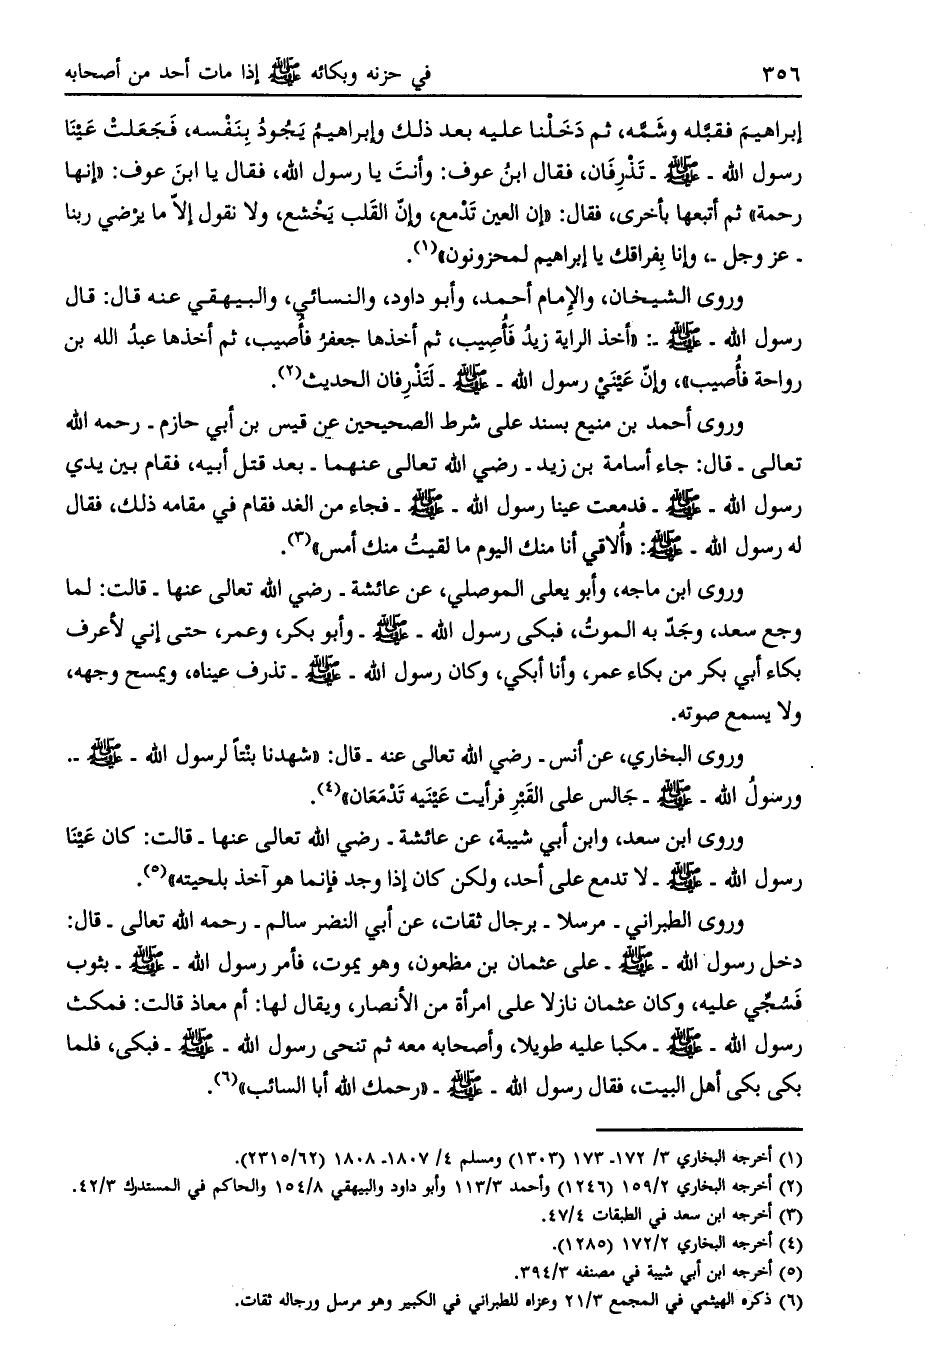 ٣٥٦ في حزنه وبكائه ﷺ إذا مات أحد من أصحابه
إبراهيمَ فقبَّله وشَمَّه، ثم دَخَلْنا عليه بعد ذلك وإبراهيمُ يَجُودُ بِنَفْسه، فَجَعَلتْ عَيْنَا
رسول الله ـ ﷺ ـ تَذْرِفَان، فقال ابنُ عوف: وأنتَ يا رسول الله، فقال يا ابنَ عوف: «إنها
رحمة» ثم أتبعها بأخرى، فقال: «إن العين تَدْمع، وإنّ القَلب يَخْشع، ولا نقول إلاّ ما يرْضي ربنا
ـ عز وجل ـ، وإنا بِفراقك يا إبراهيم لمحزونون»(١).
وروى الشيخان، والإمام أحمد، وأبو داود، والنسائي، والبيهقي عنه قال: قال
رسول الله ـ ﷺ ـ: «أخذ الراية زيدُ فَأُصِيب، ثم أخذها جعفرُ فأُصيب، ثم أخذها عبدُ الله بن
رواحة فأُصيب»، وإنّ عَيْنَيْ رسول الله ـ ﷺ ـ لَتَذْرِفان الحديث(٢).
وروى أحمد بن منيع بسند على شرط الصحيحين عن قيس بن أبي حازم ـ رحمه الله
تعالى ـ قال: جاء أسامة بن زيد ـ رضي الله تعالى عنهما ـ بعد قتل أبيه، فقام بين يدي
رسول الله ـ ﷺ ـ فدمعت عينا رسول الله ـ ﷺ ـ فجاء من الغد فقام في مقامه ذلك، فقال
له رسول الله ـ ﷺ: «أُلاقي أنا منك اليوم ما لقيتُ منك أمس»(٣).
وروى ابن ماجه، وأبو يعلى الموصلي، عن عائشة ـ رضي الله تعالى عنها ـ قالت: لما
وجع سعد، وجَدّ به الموتُ، فبكى رسول الله ـ ﷺ ـ وأبو بكر، وعمر، حتى إني لأعرف
بكاء أبي بكر من بكاء عمر، وأنا أبكي، وكان رسول الله ـ ﷺ ـ تذرف عيناه، ويمسح وجهه،
ولا يسمع صوته.
وروى البخاري، عن أنس ـ رضي الله تعالى عنه ـ قال: «شهدنا بنْتاً لرسول الله ـ ﷺ ـ.
ورسولُ الله ـ ﷺ ـ جَالس على القَبْرِ فرأيت عَيْنَيه تَدْمَعَان»(٤).
وروى ابن سعد، وابن أبي شيبة، عن عائشة ـ رضي الله تعالى عنها ـ قالت: كان عَيْنَا
رسول الله ـ ﷺ ـ لا تدمع على أحد، ولكن كان إذا وجد فإنما هو آخذ بلحيته»(٥).
وروى الطبراني ـ مرسلا ـ برجال ثقات، عن أبي النضر سالم ـ رحمه الله تعالى ـ قال:
دخل رسول الله ـ ﷺ ـ على عثمان بن مظعون، وهو يموت، فأمر رسول الله ـ ﷺ ـ بثوب
فَسُجِّي عليه، وكان عثمان نازلا على امرأة من الأنصار، ويقال لها: أم معاذ قالت: فمكث
رسول الله ـ ﷺ ـ مكبا عليه طويلا، وأصحابه معه ثم تنحى رسول الله ـ ﷺ ـ فبكى، فلما
بكى بكى أهل البيت، فقال رسول الله ـ ﷺ ـ «رحمك الله أبا السائب»(٦).
(١) أخرجه البخاري ٣/ ١٧٢ـ ١٧٣ (١٣٠٣) ومسلم ٤/ ١٨٠٧ـ ١٨٠٨ (٢٣١٥/٦٢).
(٢) أخرجه البخاري ١٥٩/٢ (١٢٤٦) وأحمد ١١٣/٣ وأبو داود والبيهقي ١٥٤/٨ والحاكم في المستدرك ٤٢/٣.
(٣) أخرجه ابن سعد في الطبقات ٤٧/٤.
(٤) أخرجه البخاري ١٧٢/٢ (١٢٨٥).
(٥) أخرجه ابن أبي شيبة في مصنفه ٣٩٤/٣.
(٦) ذكره الهيثمي في المجمع ٢١/٣ وعزاه للطبراني في الكبير وهو مرسل ورجاله ثقات.